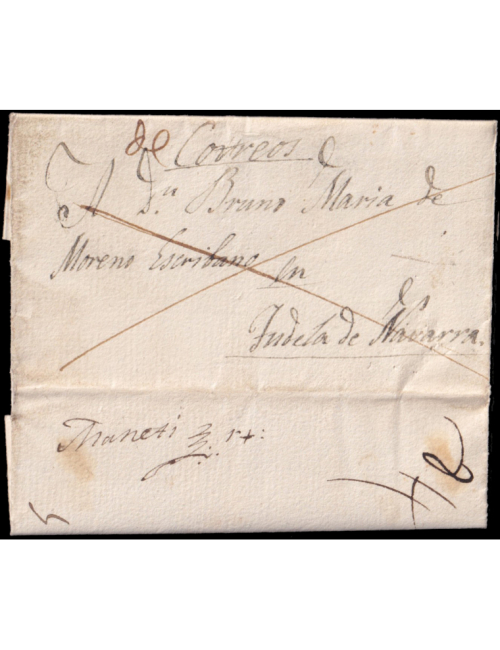 de Correos
A D.n Bruno Maria de
Moreno Escribano
en
Tudela de Navarra.